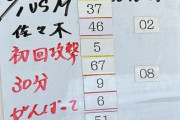 佐々木
初回攻撃
30分
ぜんぱーて
37
46 02
5
67
9 08
6
51